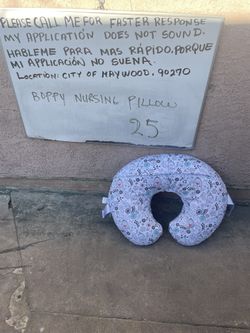 PLEASE CALL ME FOR FASTER RESPONSE
MY APPLICATION DOES NOT SOUND.
HABLEME PARA MAS RÁPIDO.PORQUE
MI APPLICACIÓN NO SUENA.
LOCATION: CITY OF MAYWOOD. 90270
BOPPY NURSING PILLOW
25